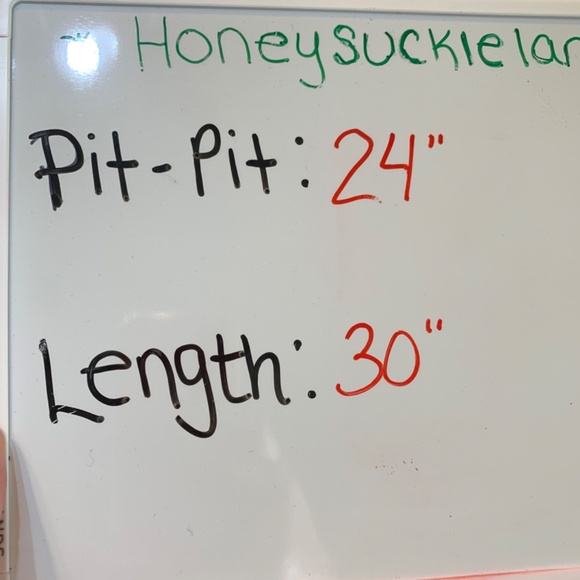 Honeysucklelan
Pit-Pit: 24"
Length: 30"